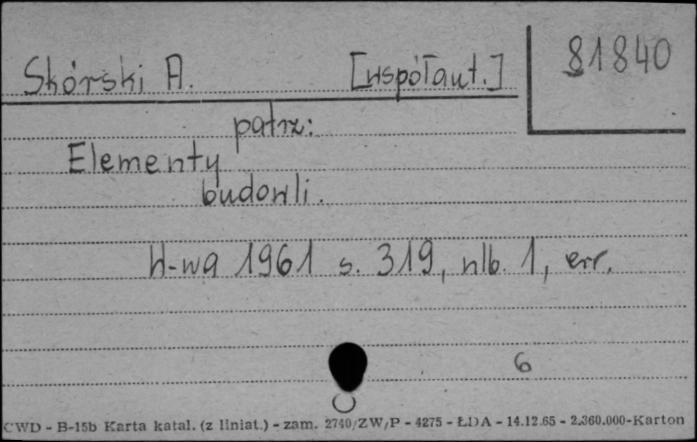 81840
Skórski A. [współaut.]
patrz:
Elementy
budowli.
W-wa 1961 s. 319, nlb. 1, err.
6
CWD - B-15b Karta katal. (z liniat.) - zam. 2740/ZW/P - 4275 - ŁDA - 14.12.65 - 2.360.000-Karton